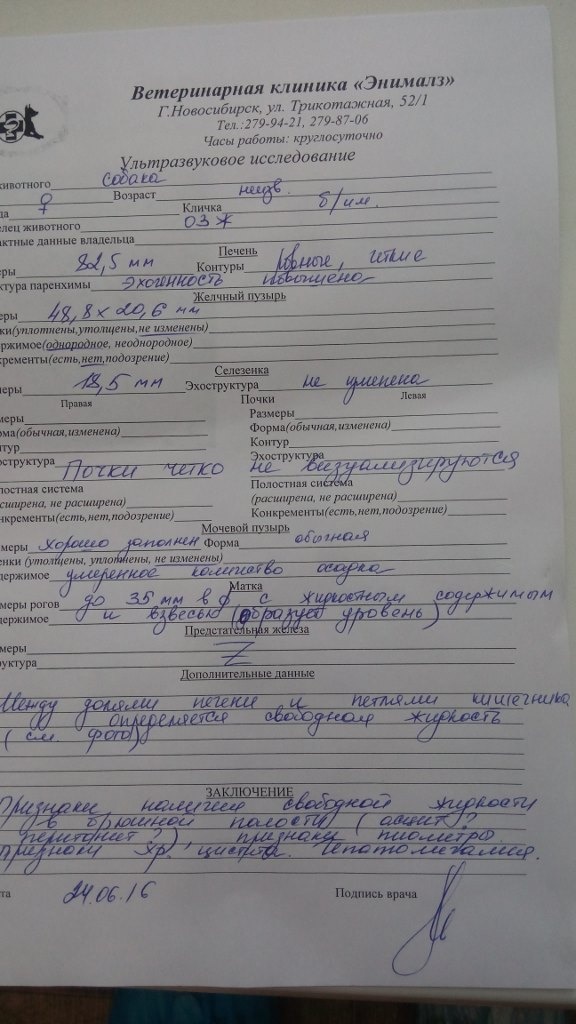 Ветеринарная клиника «Энималз»
Г.Новосибирск, ул. Трикотажная, 52/1
Тел.:279-94-21, 279-87-06
Часы работы: круглосуточно
Ультразвуковое исследование
животного собака
да ♀ Возраст неизв. Кличка б/им.
лец животного ОЗЖ
актные данные владельца
Печень
еры 82,5 мм Контуры ровные, четкие
ктура паренхимы эхогенность повышена
Желчный пузырь
еры 48,8 х 20,6 мм
ки(уплотнены,утолщены,не изменены)
держимое (однородное, неоднородное)
кременты(есть,нет,подозрение)
Селезенка
меры 18,5 мм Эхоструктура не изменена
Правая Почки Левая
меры Размеры
рма(обычная,изменена) Форма(обычная,изменена)
нтур Контур
оструктура Эхоструктура
Почки четко не визуализируются
лостная система Полостная система
асширена, не расширена) (расширена, не расширена)
нкременты(есть,нет,подозрение) Конкременты(есть,нет,подозрение)
Мочевой пузырь
меры хорошо заполнен Форма обычная
енки (утолщены, уплотнены, не изменены)
держимое умеренное количество осадка
Матка
меры рогов до 35 мм в ф с жидкостным содержимым
держимое и взвесью (образует уровень)
Предстательная железа
меры
руктура
Дополнительные данные
Между долями печени и петлями кишечника
определяется свободная жидкость
(см. фото)
ЗАКЛЮЧЕНИЕ
Признаки наличия свободной жидкости
в брюшной полости (асцит?
перитонит?), признаки пиометры
признаки хр. цистита. Гепатомегалия.
та 24.06.16 Подпись врача